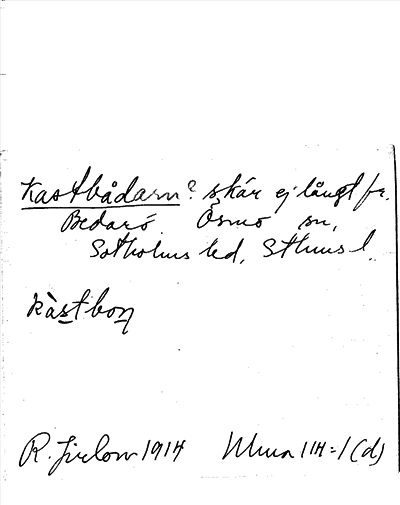 Kastbådarn? skär ej långt fr.
Bedarö Ösmo sn,
Sotholms hd, Sthms l.
kàstboṉ
R. Jirlow 1914 Muua 114:1 (d)